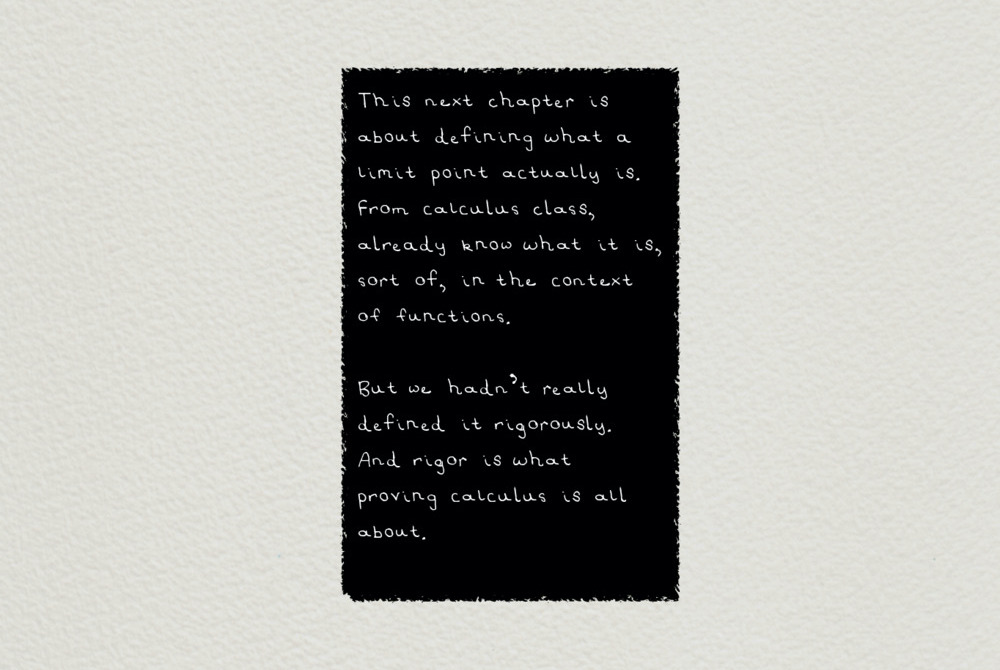 This next chapter is
about defining what a
limit point actually is.
From calculus class,
already know what it is,
sort of, in the context
of functions.
But we hadn't really
defined it rigorously.
And rigor is what
proving calculus is all
about.